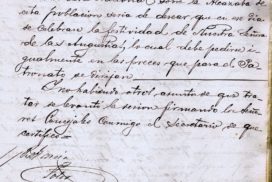 nacional sería la Alcazaba de
esta población sería de desear que en su dia
se celebrara la festividad de Nuestra Señora
de las Angustias, lo cual debe pedirse i
gualmente en las preces que para el Pa
tronato se dirijan.
No habiendo otros asuntos de que tra
tar se levanta la sesion firmando los Seño
res Concejales conmigo el Secretario de que
certifico=